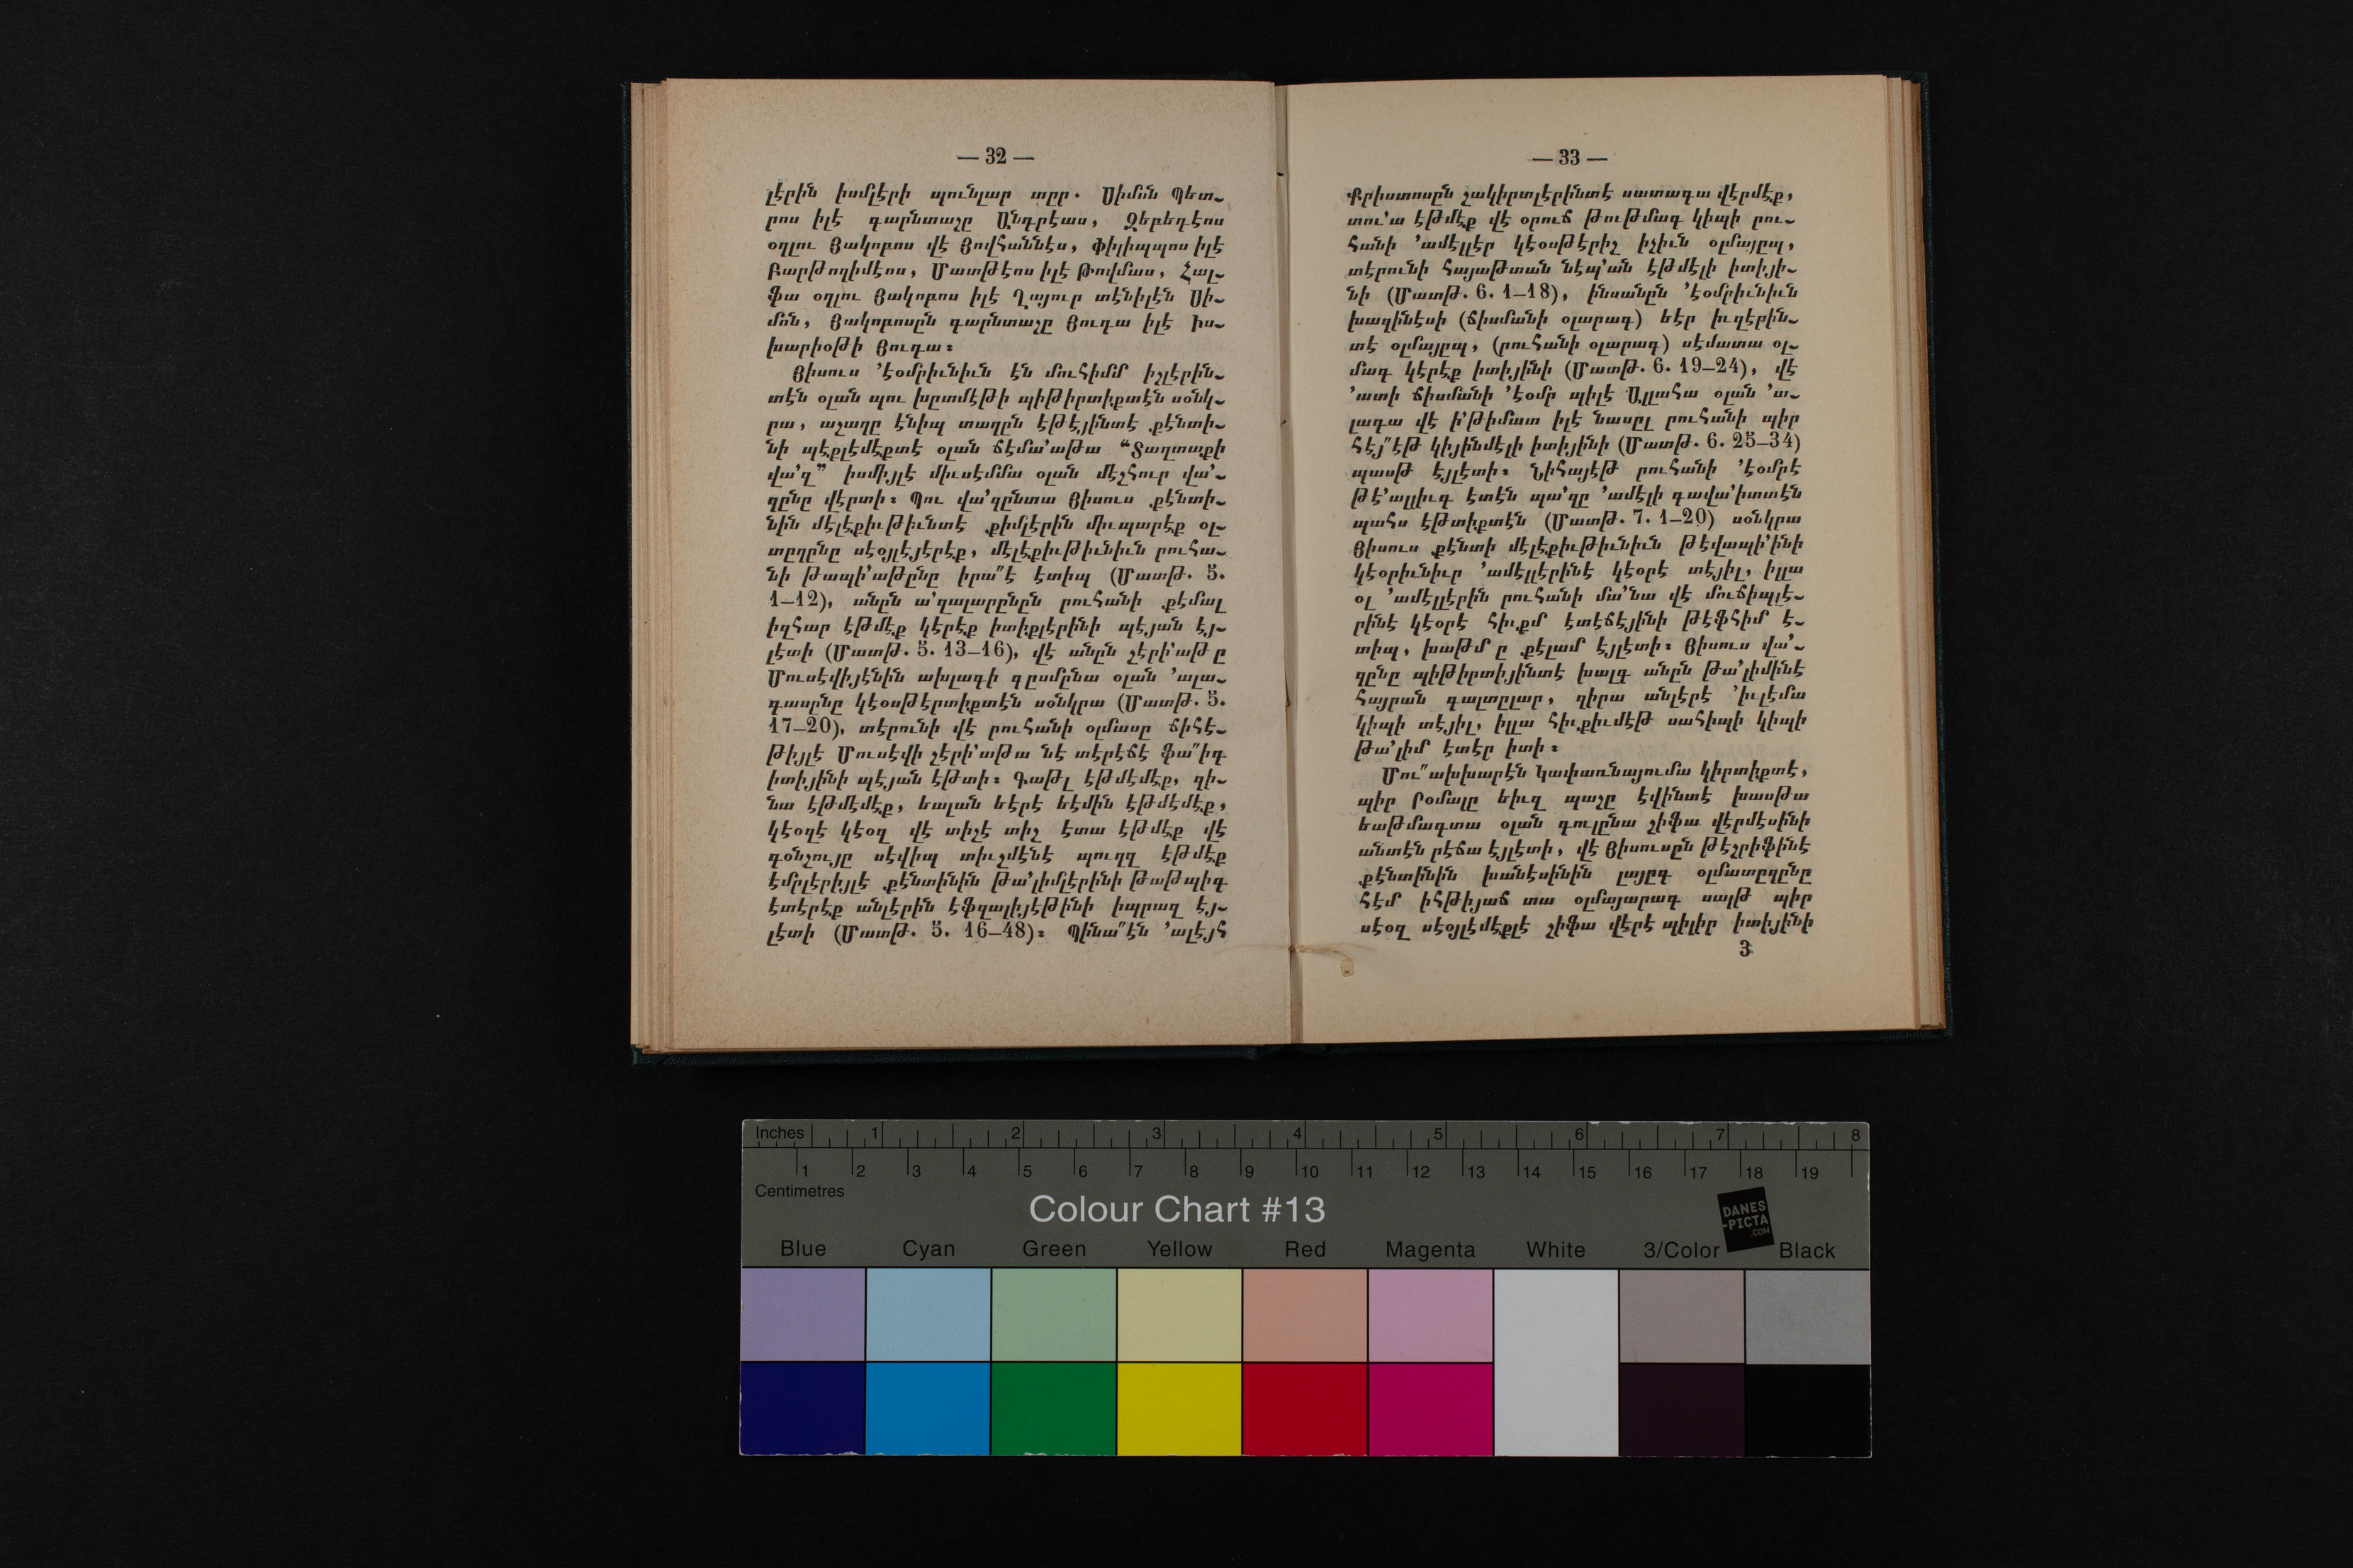 — 32 —
լէրին իսմլէրի պունլար տըր. Սիմոն Պետ֊
րոս իլէ գարնտաշը Անդրէաս, Զեբեդէոս
օղլու Յակոբոս վէ Յովհաննէս, Փիլիպպոս իլէ
Բարթողիմէոս, Մատթէոս իլէ Թովմաս, Հալ֊
ֆա օղլու Յակոբոս իլէ Ղայուր տէնիլէն Սի֊
մոն, Յակոբոսըն գարնտաշը Յուդա իլէ Իս֊
խարիօթի Յուդա։
Յիսուս ՚էօմրիւնիւն էն մուհիմմ իշլէրին֊
տէն օլան պու խըտմէթի պիթիրտիքտէն սօնկ֊
րա, աշաղը էնիպ տաղըն էթէյինտէ քէնտի֊
նի պէքլէմէքտէ օլան ճէմա՚աթա “Տաղտաքի
վա՚զ” իսմիյլէ միւսէմմա օլան մէշհուր վա՚֊
զընը վէրտի։ Պու վա՚զընտա Յիսուս քէնտի֊
նին մէլէքիւթիւնտէ քիմլէրին միւպարէք օլ֊
տըղընը սէօյլէյէրէք, մէլէքիւթիւնիւն րուհա֊
նի թապի՚աթընը իրա՛՛է էտիպ (Մատթ. 5.
1–12), անըն ա՚զալարընըն րուհանի քէմալ
իզհար էթմէք կէրէք իտիքլէրինի պէյան էյ֊
լէտի (Մատթ. 5. 13–16), վէ անըն շէրի՚աթը
Մուսէվիյէնին ախլագի գըսմընա օլան ՚ալա֊
գասընը կէօսթէրտիքտէն սօնկրա (Մատթ. 5.
17–20), տէրունի վէ րուհանի օլմասը ճիհէ֊
թիյլէ Մուսէվի շէրի՚աթա նէ տէրէճէ ֆա՛՛իգ
իտիյինի պէյան էթտի։ Գաթլ էթմէմէք, զի֊
նա էթմէմէք, եալան եէրէ եէմին էթմէմէք,
կէօզէ կէօզ վէ տիշէ տիշ էտա էթմէք վէ
գօնշույը սէվիպ տիւշմէնէ պուղզ էթմէք
էմրլէրիյլէ քէնտինին թա՚լիմլէրինի թաթպիգ
էտէրէք անլէրին էֆզալիյէթինի իպրազ էյ֊
լէտի (Մատթ. 5. 16–48)։ Պինա՛՛էն ՚ալէյհ
— 33 —
Քրիստոսըն շակիրտլէրինտէ սատագա վէրմէք,
տու՚ա էթմէք վէ օրուճ թութմագ կիպի րու֊
հանի ՚ամէլլէր կէօսթէրիշ իչիւն օլմայըպ,
տէրունի հայաթտան նէպ՚ան էթմէլի իտիյի֊
նի (Մատթ. 6. 1–18), ինսանըն ՚էօմրիւնիւն
խազինէսի (ճիսմանի օլարագ) եէր իւզէրին֊
տէ օլմայըպ, (րուհանի օլարագ) սէմատա օլ֊
մագ կէրէք իտիյինի (Մատթ. 6. 19–24), վէ
՚ատի ճիսմանի ՚էօմր պիլէ Ալլահա օլան ՚ա֊
լագա վէ ի՚թիմատ իլէ նասըլ րուհանի պիր
հէյ՛՛էթ կիյինմէլի իտիյինի (Մատթ. 6. 25–34)
պասթ էյլէտի։ Նիհայէթ րուհանի ՚էօմրէ
թէ՚ալլիւգ էտէն պա՚զը ՚ամէլի գավա՚իտտէն
պահս էթտիքտէն (Մատթ. 7. 1–20) սօնկրա
Յիսուս քէնտի մէլէքիւթիւնիւն թէվապի՚ինի
կէօրիւնիւր ՚ամէլլէրինէ կէօրէ տէյիլ, իլլա
օլ ՚ամէլլէրին րուհանի մա՚նա վէ մուճիպլէ֊
րինէ կէօրէ հիւքմ էտէճէյինի թէֆհիմ է֊
տիպ, խաթմ ը քէլամ էյլէտի։ Յիսուս վա՚֊
զընը պիթիրտիյինտէ խալգ անըն թա՚լիմինէ
հայրան գալտըլար, զիրա անլէրէ ՚իւլէմա
կիպի տէյիլ, իլլա հիւքիւմէթ սահիպի կիպի
թա՚լիմ էտէր իտի։
Մու՛՛ախխարէն Կափառնայումա կիրտիքտէ,
պիր Րօմալը եիւզ պաշը էվինտէ խասթա
եաթմագտա օլան գուլընա շիֆա վէրմէսինի
անտէն րէճա էյլէտի, վէ Յիսուսըն թէշրիֆինէ
քէնտինին խանէսինին լայըգ օլմատըղընը
հէմ իհթիյաճ տա օլմայարագ սալթ պիր
սէօզ սէօյլէմէքլէ շիֆա վէրէ պիլիր իտիյինի
3
Inches 1 2 3 4 5 6 7 8
1 2 3 4 5 6 7 8 9 10 11 12 13 14 15 16 17 18 19
Centimetres
Colour Chart #13
DANES
-PICTA
.COM
Blue Cyan Green Yellow Red Magenta White 3/Color Black